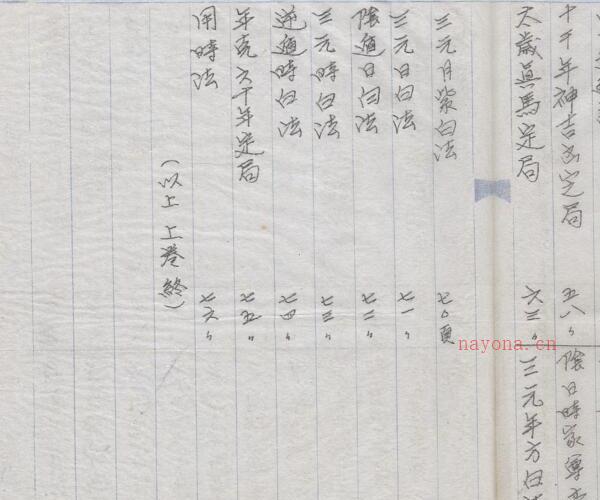 十干年神吉凶定局 五八〃
太歲眞馬定局 六三〃
三元年方白法
三元月紫白法 七〇頁
三元日白法 七一〃
陰遁日白法 七二〃
三元時白法 七三〃
逆遁時白法 七四〃
年克六十年定局 七五〃
用時法 七六〃
(以上 上卷終)
nayona.cn